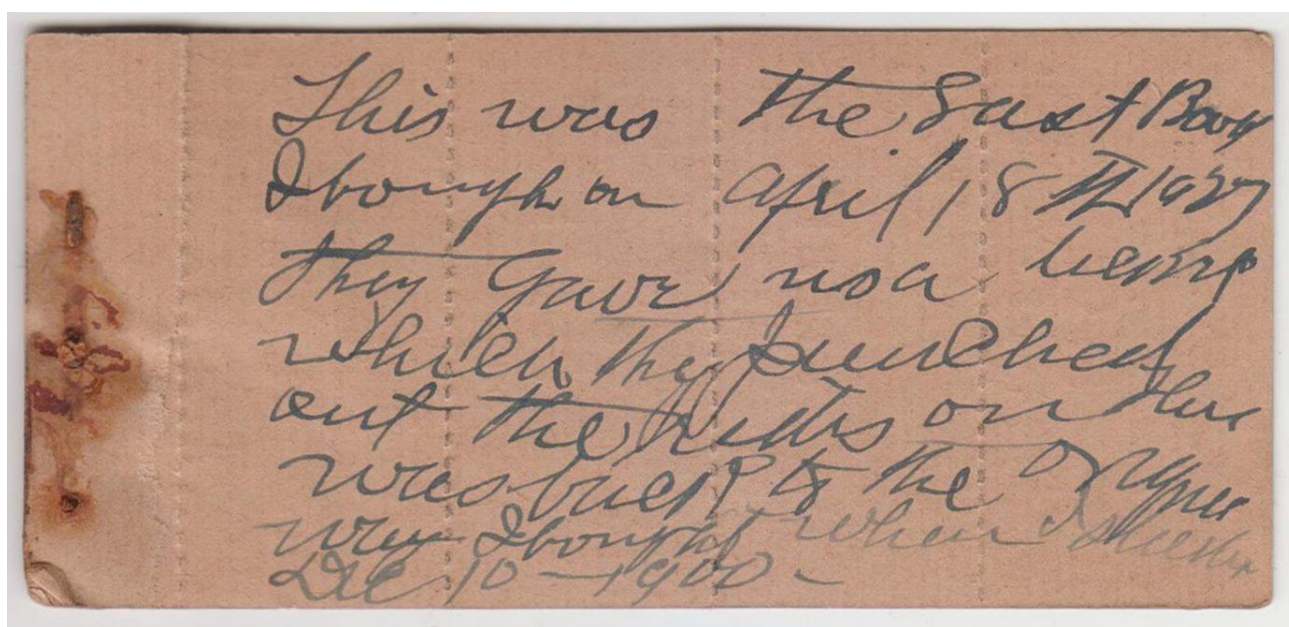 This was the Last Book
I bough on April 18th 1927
they gave us a being
which they punched
out the on there
was back to the
way I bought when I
Dec 10 - 1900 -